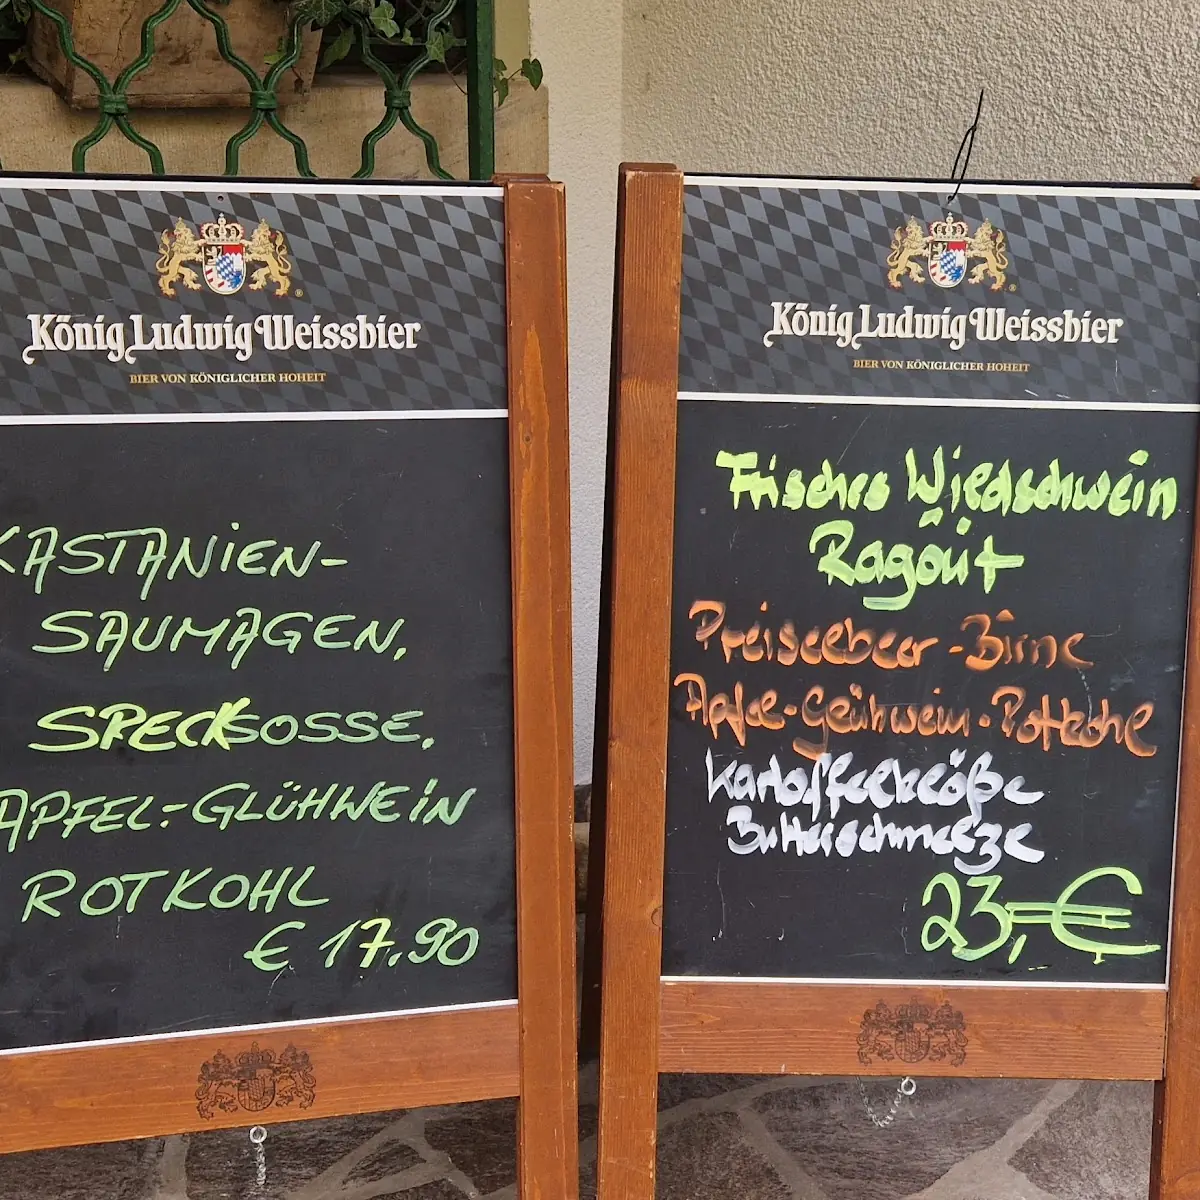 König Ludwig Weissbier
BIER VON KÖNIGLICHER HOHEIT
KASTANIEN-
SAUMAGEN,
SPECKSOSSE,
APFEL-GLÜHWEIN
ROTKOHL
€ 17.90
König Ludwig Weissbier
BIER VON KÖNIGLICHER HOHEIT
Frisches Wildschwein
Ragôut
Preiseebeer-Birne
Apfel-Glühwein-Rotkohl
Kartoffelklöße
Butterschmelze
23,-€